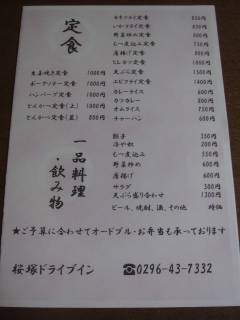 定食
生姜焼き定食 1000円
ポークソテー定食 1000円
ハンバーグ定食 1000円
とんかつ定食(上) 1000円
とんかつ定食(並) 800円
カキフライ定食 850円
いかフライ定食 700円
野菜炒め定食 800円
もつ煮込み定食 750円
唐揚げ定食 800円
ヒレカツ定食 1000円
天ぷら定食 1500円
エビフライ定食 1400円
カレーライス 600円
カツカレー 800円
オムライス 750円
チャーハン 600円
一品料理・飲み物
餃子 350円
冷や奴 200円
もつ煮込み 550円
野菜炒め 600円
唐揚げ 600円
サラダ 300円
天ぷら盛り合わせ 1300円
ビール、焼酎、酒、その他 時価
★ご予算に合わせてオードブル・お弁当も承っております
桜塚ドライブイン ☎0296-43-7332